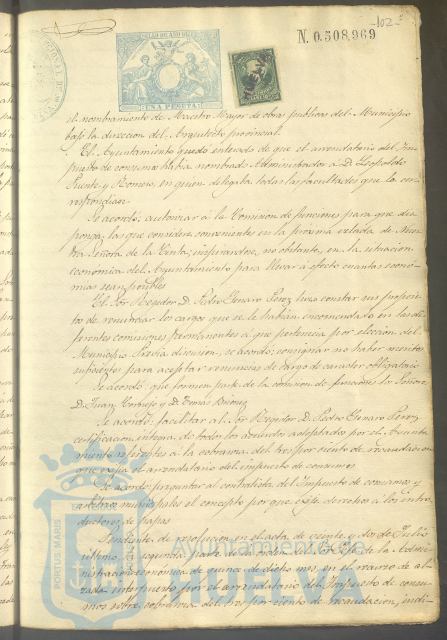 -102-
SELLO DE AÑO DE
UNA PESETA
N. 0.508,969
el nombramiento de Maestro Mayor de obras publicas del Municipio
bajo la direccion del Arquitecto provincial.
El Ayuntamiento quedó enterado de que el arrendatario del Im-
puesto de consumos habia nombrado Administrador a D. Leopoldo
Puente y Romero, en quien delegaba todas las facultades que le cor-
respondian
Se acordó; autorizar a la Comision de funciones para que dis-
ponga las que considere convenientes en la proxima velada de Nues-
tra Señora de la Cinta; inspirandose, no obstante, en la situacion
economica del Ayuntamiento para llevar a efecto cuantas econo-
mias sean posibles
El Sor Regidor D. Pedro Genaro Perez hizo constar sus proposi-
tos de renunciar los cargos que se le habian encomendado en las di-
ferentes comisiones permanentes á que pertenecia por eleccion del
Municipio. Previa discusion, se acordó; consignar no haber meritos
suficientes para aceptar renuncias de cargo de caracter obligatorio
Se acordó que formen parte de la comision de funciones los Señores
D. Juan y D. Tomás
Se acordó; facilitar al Sor Regidor D. Pedro Genaro Perez
certificacion integra de todos los acuerdos adoptados por el Ayunta-
miento referentes a la cobranza del tres por ciento de recaudacion
que exija el arrendatario del impuesto de consumos
Se acordó preguntar al contratista del Impuesto de consumos y
arbitrios municipales el concepto por que exige derechos a los intro-
ductores de papas
Pendiente de resolucion en el acta de veinte y dos de Julio
ultimo la segunda parte de la orden del Sor Jefe de la Admi-
nistracion economica de quince de dicho mes, en el recurso de al-
zada interpuesto por el arrendatario del Impuesto de consu-
mos sobre cobranza del tres por ciento de recaudacion, indi-
PORTUS MARIS
Ayuntamiento de
HUELVA